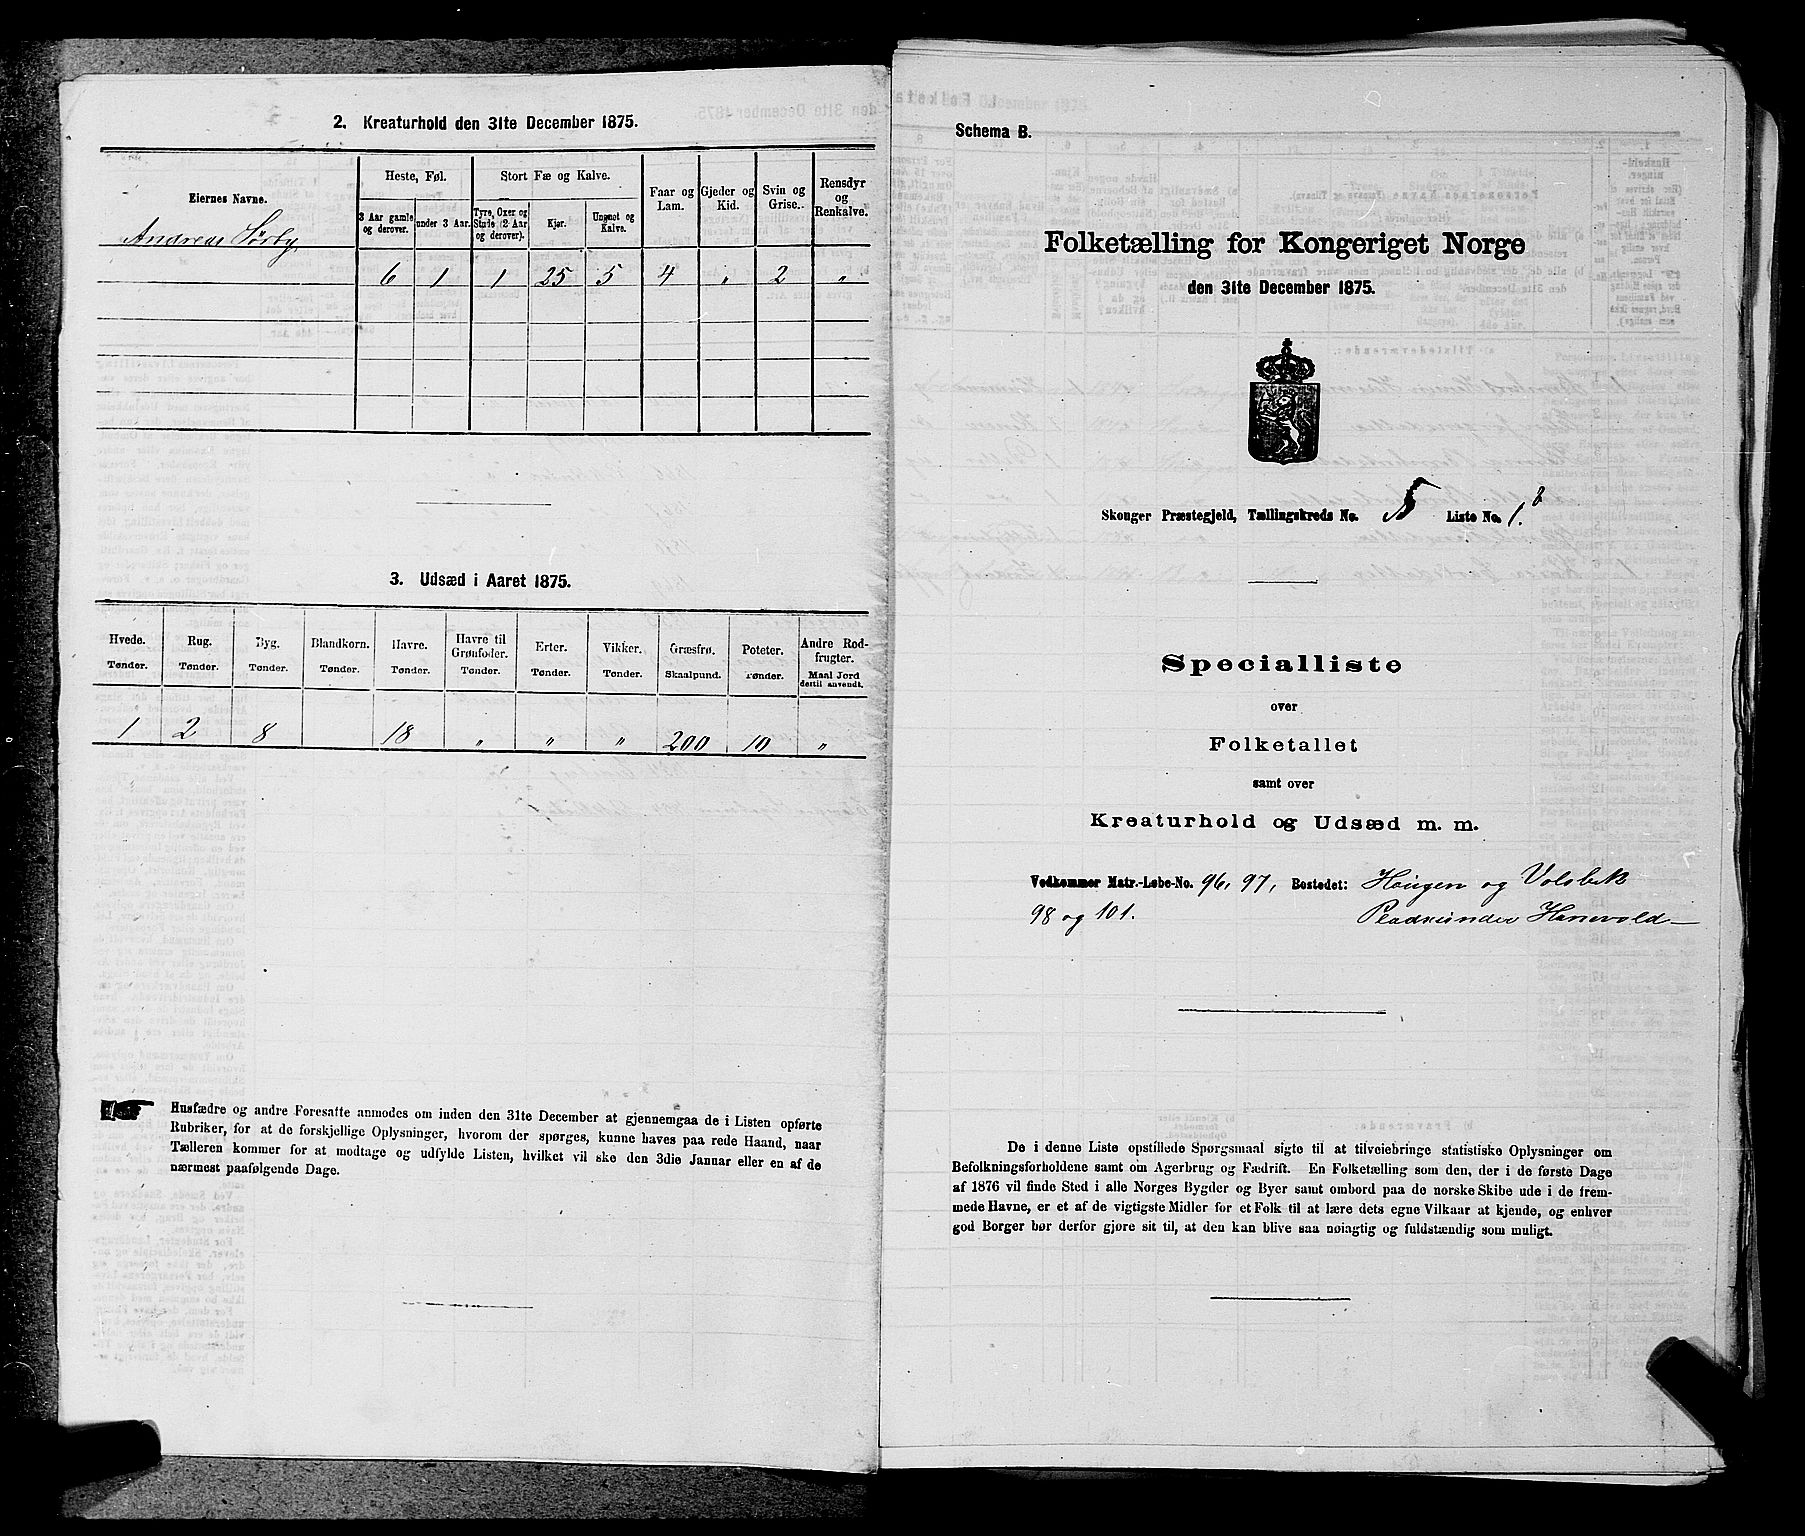 2. Kreaturhold den 31te December 1875.
Eiernes Navne.
Heste, Føl.
3 Aar gamle og derover.
under 3 Aar.
Stort Fæ og Kalve.
Tyre, Oxer og Stude (2 Aar og derover).
Kjør.
Ungnøt og Kalve.
Faar og Lam.
Gjeder og Kid.
Svin og Grise.
Rensdyr og Renkalve.
Andreas Sørby
6 1 1 25 5 4 „ 2 „
3. Udsæd i Aaret 1875.
Hvede. Rug. Byg. Blandkorn. Havre. Havre til Grønfoder. Erter. Vikker. Græsfrø. Poteter. Andre Rodfrugter.
Tønder. Tønder. Tønder. Tønder. Tønder. Tønder. Tønder. Tønder. Skaalpund. Tønder. Maal Jord dertil anvendt.
1 2 8 18 „ „ „ 200 10 „
Husfædre og andre Foresatte anmodes om inden den 31te December at gjennemgaa de i Listen opførte
Rubriker, for at de forskjellige Oplysninger, hvorom der spørges, kunne haves paa rede Haand, naar
Tælleren kommer for at modtage og udfylde Listen, hvilket vil ske den 3die Januar eller en af de
nærmest paafølgende Dage.
Schema B.
Folketælling for Kongeriget Norge
den 31te December 1875.
Skouger Præstegjeld, Tællingskreds No. 5 Liste No. 1.
Specialliste
over
Folketallet
samt over
Kreaturhold og Udsæd m. m.
Vedkommer Matr.-Løbe-No. 96, 97, Bostedet: Haugen og Volsbek
98 og 101. Pladsunder Hanevold
De i denne Liste opstillede Spørgsmaal sigte til at tilveiebringe statistiske Oplysninger om
Befolkningsforholdene samt om Agerbrug og Fædrift. En Folketælling som den, der i de første Dage
af 1876 vil finde Sted i alle Norges Bygder og Byer samt ombord paa de norske Skibe ude i de frem-
mede Havne, er et af de vigtigste Midler for et Folk til at lære dets egne Vilkaar at kjende, og enhver
god Borger bør derfor gjøre sit til, at den kan blive saa nøiagtig og fuldstændig som muligt.